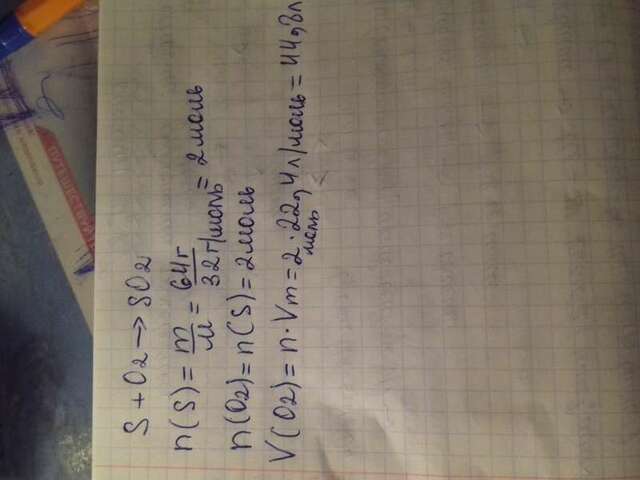 S + O2 → SO2
n(S) = m/M = 64г/32г/моль = 2моль
n(O2) = n(S) = 2моль
V(O2) = n · Vm = 2 моль · 22,4л/моль = 44,8л
ПУТЕШЕСТВ